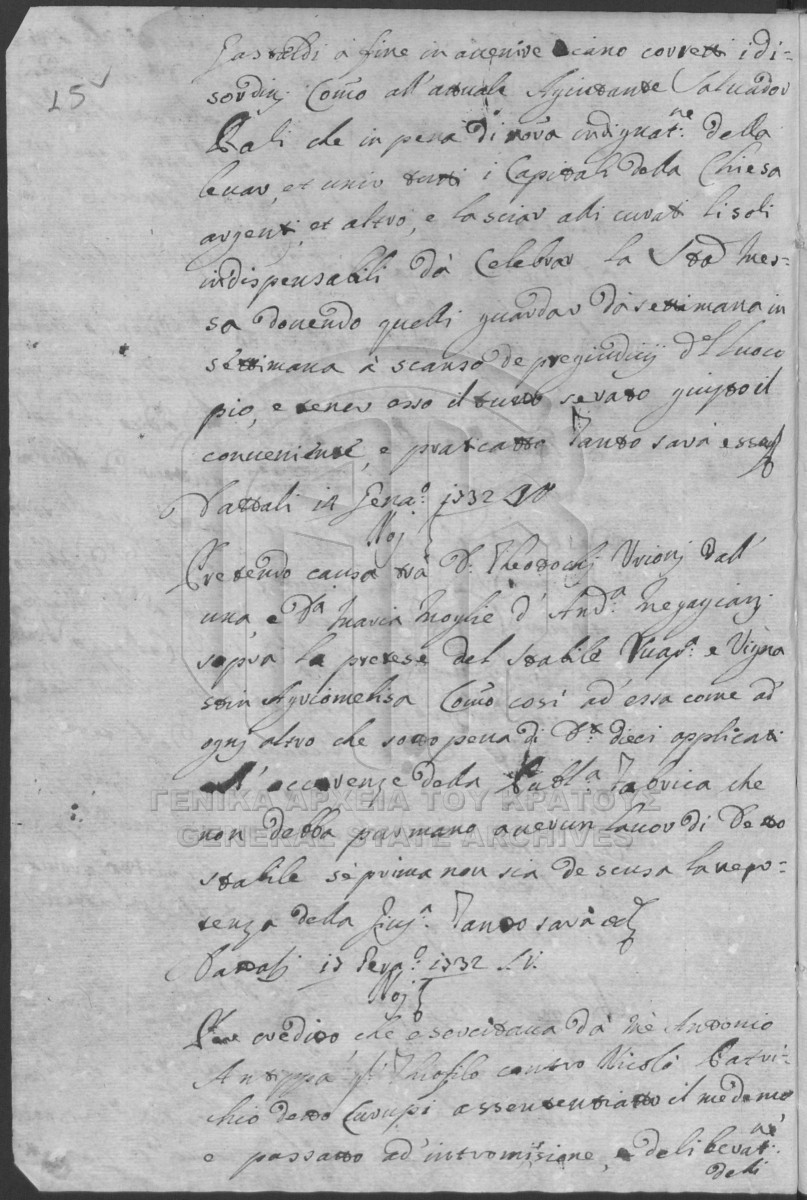 15
Gastaldi à fine in avenire siano corretti i di=
sordinj. Como all'attuale Agiutante Salvador
Bali che in pena di nova indignat:ne della
levar, et unir tutti i Capitali della Chiesa
argenti, et altro, e lasciar alli curati li soli
indispensabili dà Celebrar la Sta Mes=
sa dovendo quelli guardar dà settimana in
settimana à scanso de pregiudicij del luoco
pio, e tener esso il tutto servato giusto il
conveniente, e praticatto tanto sarà esseg
Dattali 14 Gena:o 1732 SN
Noj
Vertendo causa trà D: Theodochj Vrionj dall'
una, e Da Maria Moglie d'And:a Megagianj
sopra la pretesa del stabile e Vigna
stin Agriomelisa Como così ad'essa come ad'
ognj altro che sotto pena di Dti dieci applicati
all'occorenze della Publ:a Fabrica che
non debba por mano a verun lavor di detto
stabile se prima non sia descusa la repo=
tenza della Giuj:a Tanto sarà
Dattali 17 Gena:o 1732 S.V.
Noj
Per credito che esercitava dà mè Antonio
Antippa q: Thofilo contro Nicolò Patri=
chio detto Curupi assentenziatto il medemo
e passatto ad'intromissione, e deliberat:ne
delli
ΓΕΝΙΚΑ ΑΡΧΕΙΑ ΤΟΥ ΚΡΑΤΟΥΣ
GENERAL STATE ARCHIVES